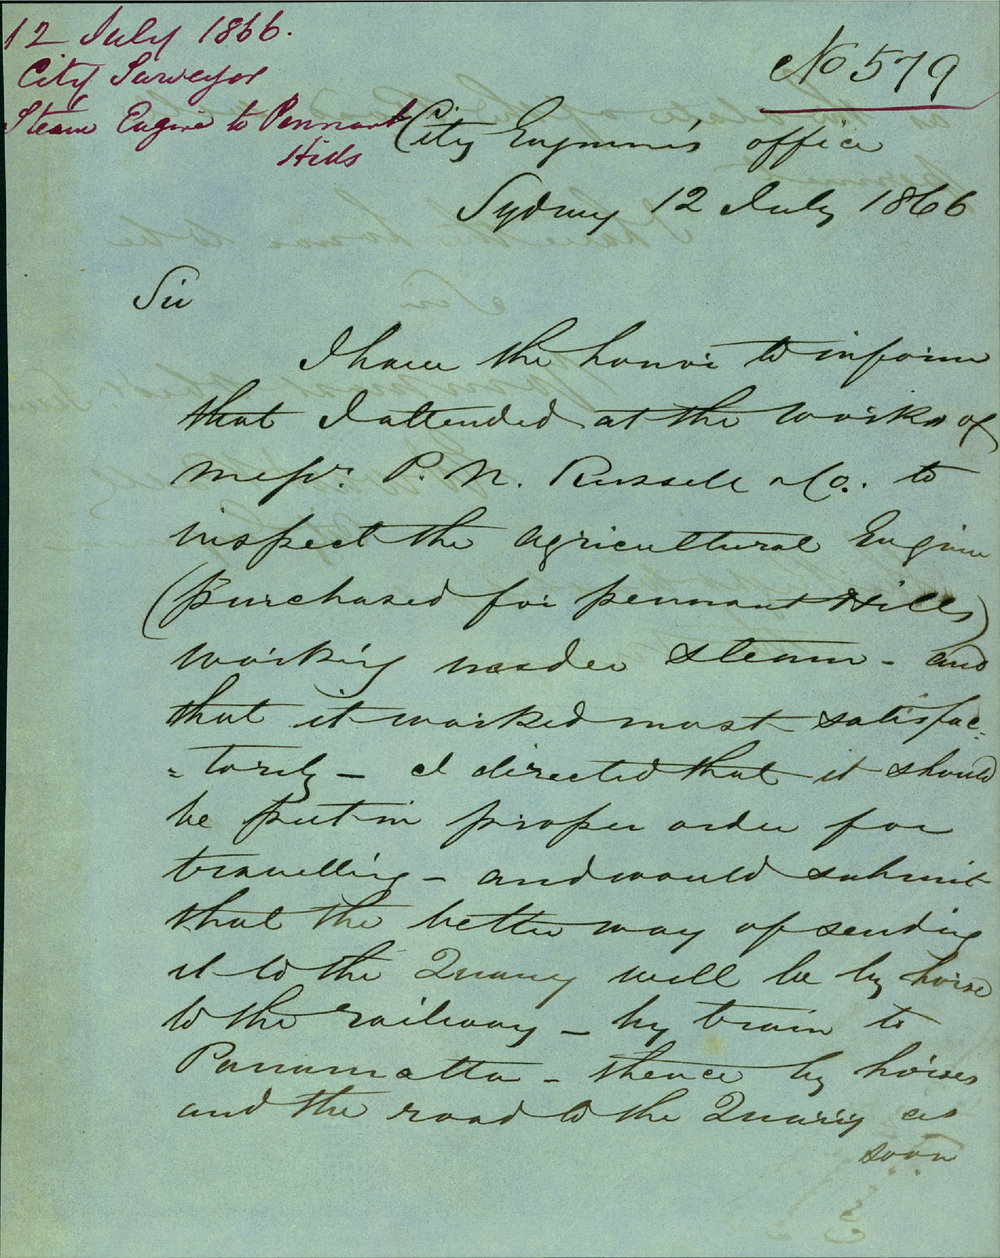 12 July 1866.
City Surveyor
Steam Engine to Pennant
Hills
No 579
City Engineer's office
Sydney 12 July 1866
Sir
I have the honor to inform
that I attended at the works of
Messrs. P. N. Russell & Co. to
inspect the agricultural Engine
(purchased for pennant Hills)
working under steam - and
that it worked most satisfac-
-torily - I directed that it should
be put in proper order for
travelling - and would submit
that the better way of sending
it to the Quarry will be by horse
to the railway - by train to
Parramatta - thence by horses
and the road to the Quarry as
soon